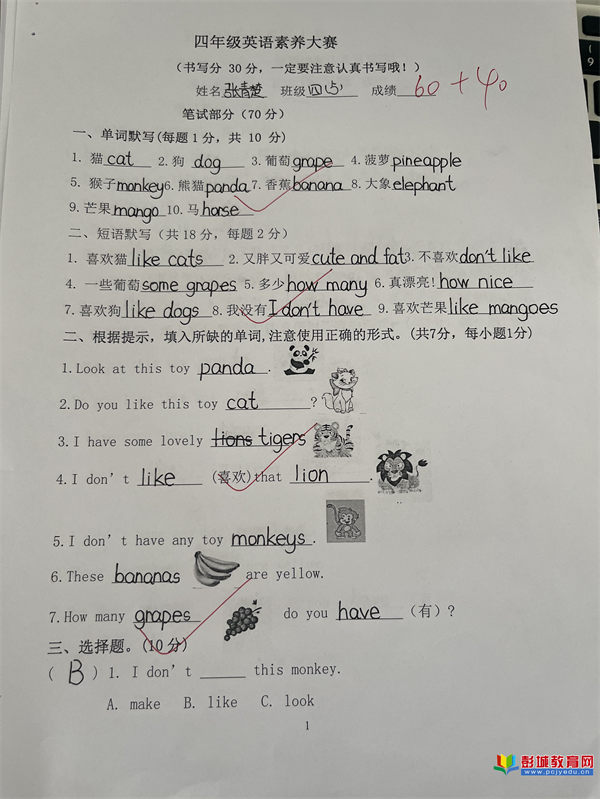 四年级英语素养大赛
（书写分 30 分，一定要注意认真书写哦！）
姓名 张青楚 班级 四(5) 成绩 60+40
笔试部分（70 分）
一、单词默写(每题 1 分，共 10 分)
1. 猫 cat 2. 狗 dog 3. 葡萄 grape 4. 菠萝 pineapple
5. 猴子 monkey 6. 熊猫 panda 7. 香蕉 banana 8. 大象 elephant
9. 芒果 mango 10. 马 horse
二、短语默写（共 18 分，每题 2 分）
1. 喜欢猫 like cats 2. 又胖又可爱 cute and fat 3. 不喜欢 don't like
4. 一些葡萄 some grapes 5. 多少 how many 6. 真漂亮! how nice
7. 喜欢狗 like dogs 8. 我没有 I don't have 9. 喜欢芒果 like mangoes
二、根据提示，填入所缺的单词,注意使用正确的形式。(共7分，每小题1分)
1. Look at this toy panda.
2. Do you like this toy cat ?
3. I have some lovely lions tigers
4. I don't like (喜欢)that lion.
5. I don't have any toy monkeys.
6. These bananas are yellow.
7. How many grapes do you have (有)?
三、选择题。(10 分)
( B ) 1. I don't _____ this monkey.
A. make B. like C. look
1
彭城教育网
www.pcjyedu.cn